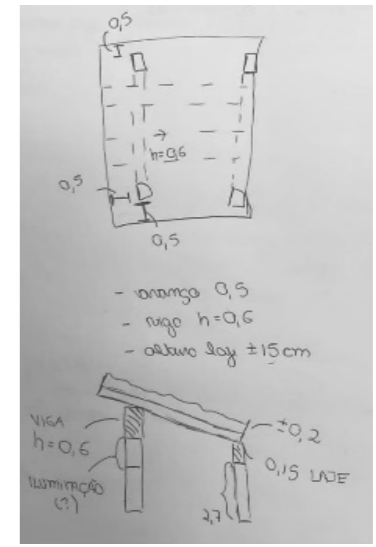 0,5
h=0,6
0,5
0,5
- avanço 0,5
- viga h=0,6
- altura laje ±15 cm
VIGA
h=0,6
±0,2
ILUMINAÇÃO
(?)
0,15 LAJE
2,7